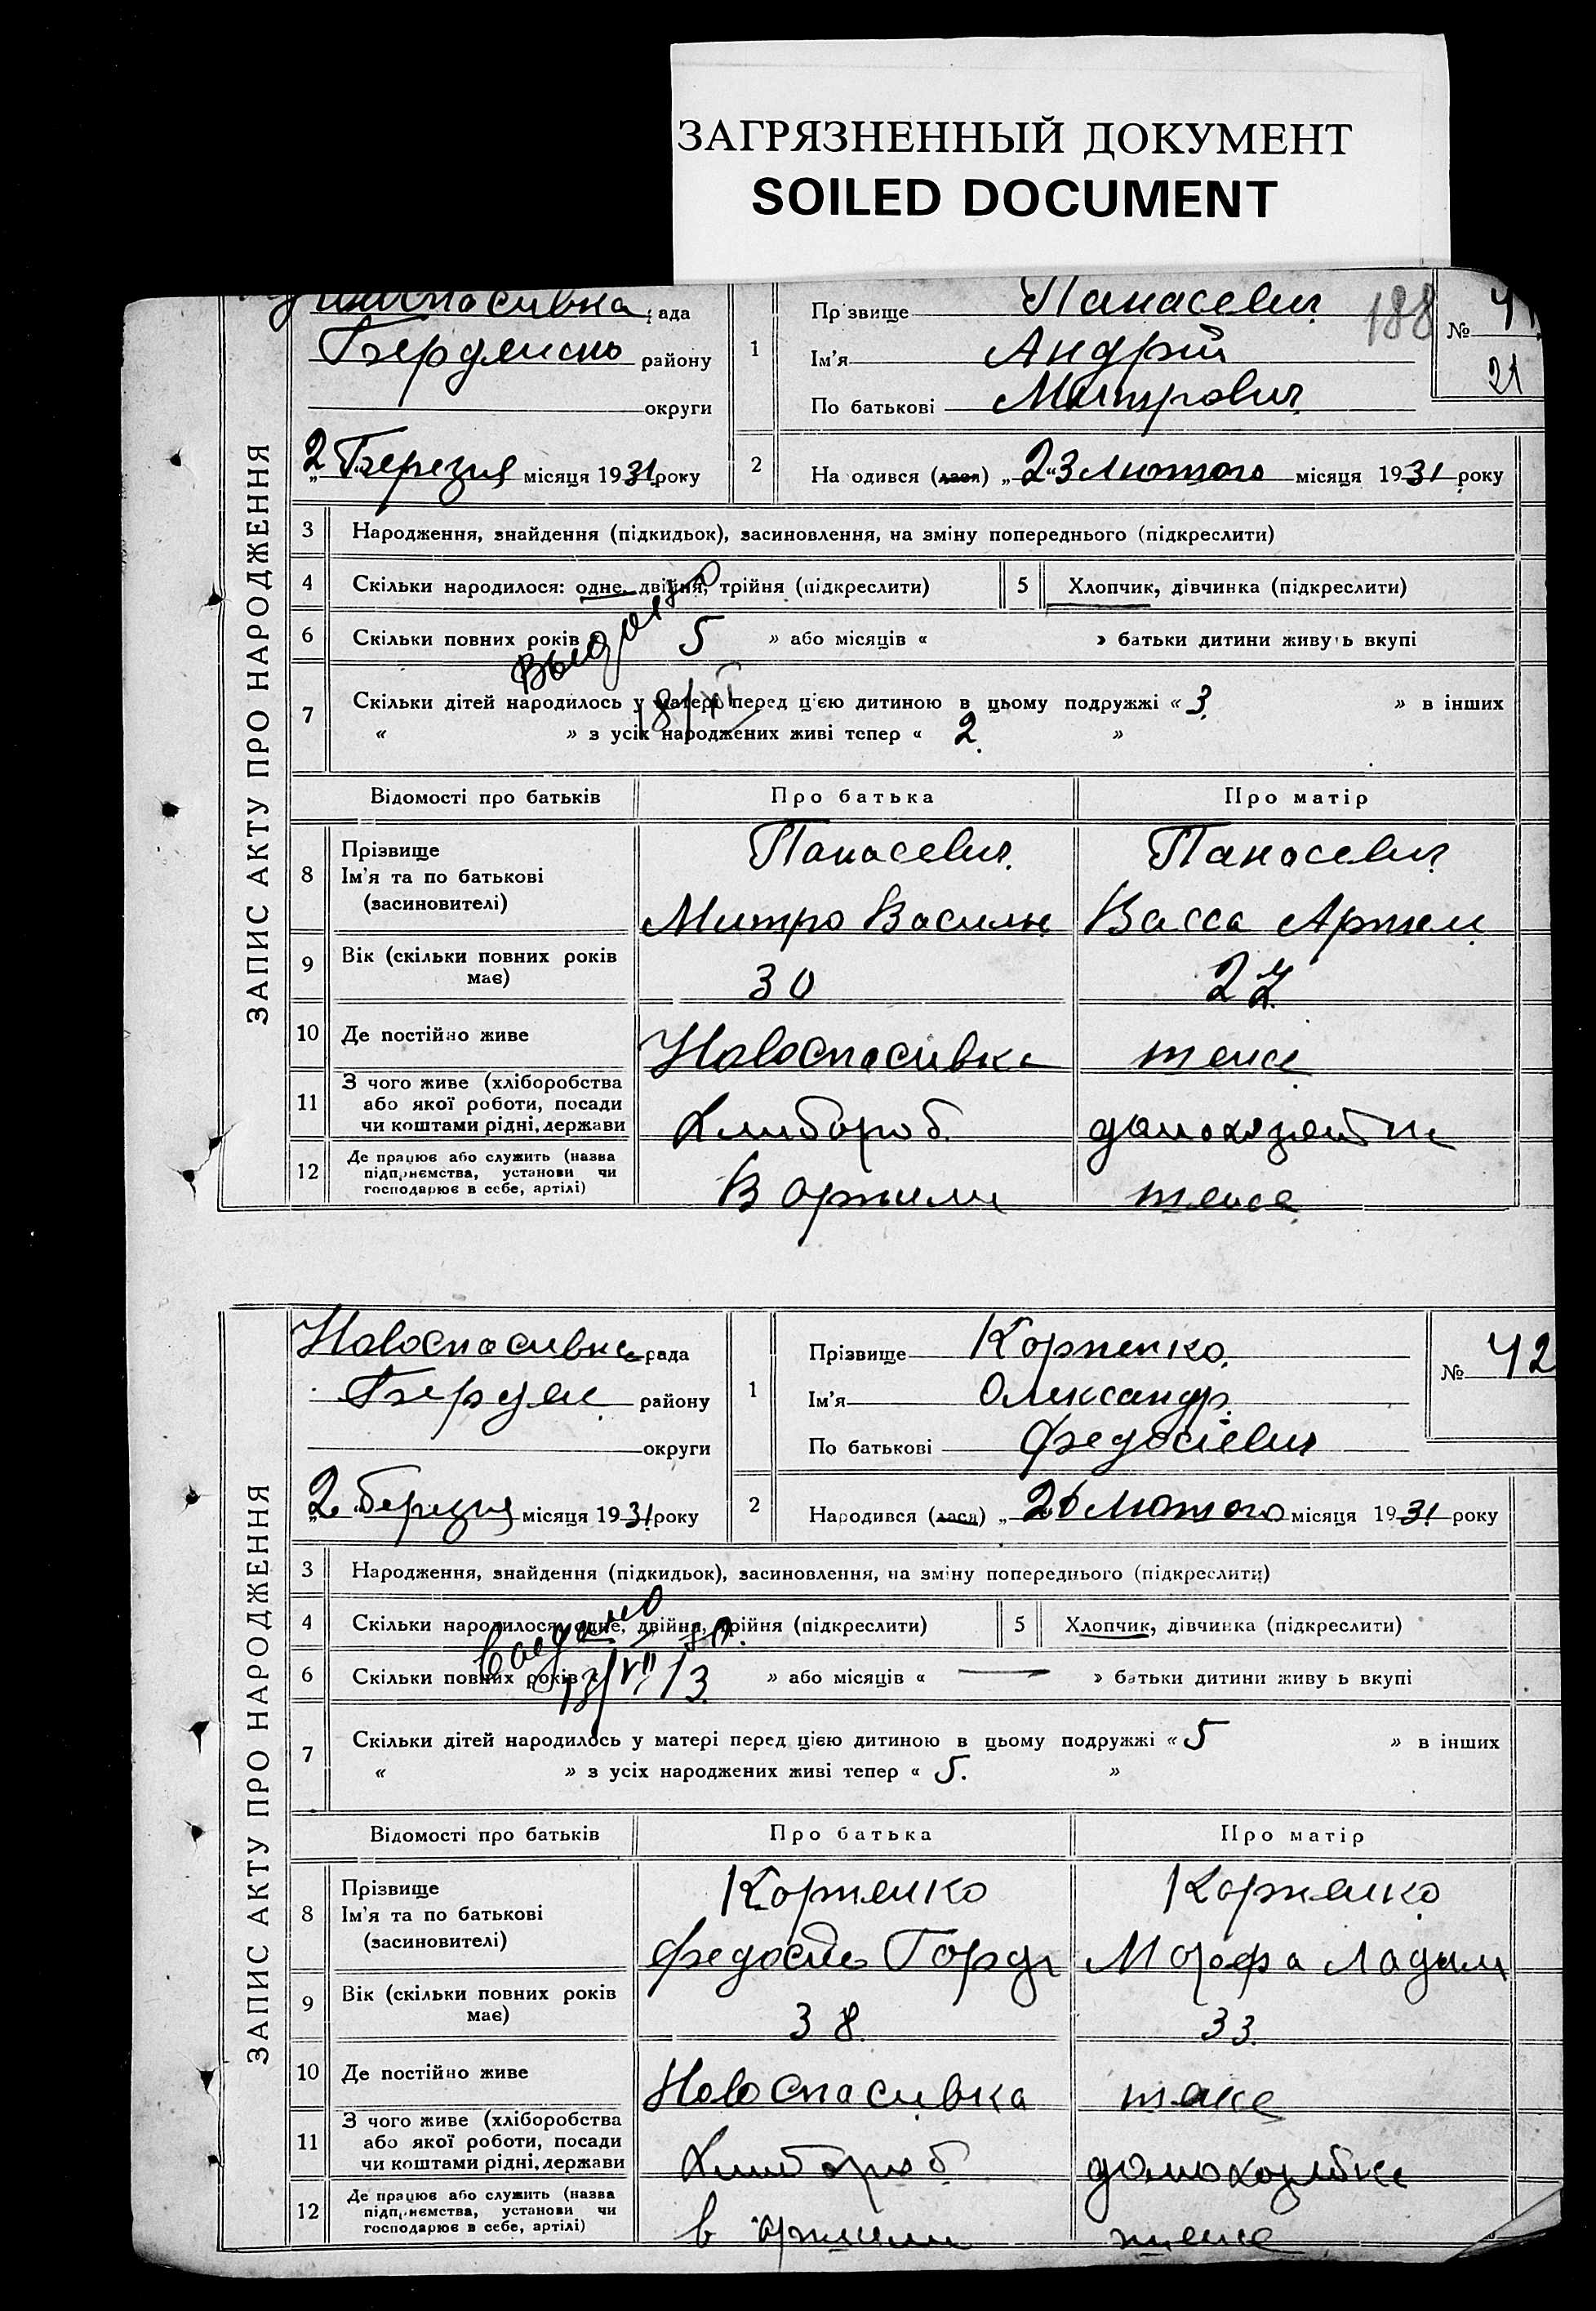 ЗАГРЯЗНЕННЫЙ ДОКУМЕНТ
SOILED DOCUMENT
188
ЗАПИС АКТУ ПРО НАРОДЖЕННЯ
Новоспасивка рада
Бердянськ району
округи
„2 Березня місяця 1931 року
1 Прізвище Панасевич
Ім'я Андрій
По батькові Митрович
№ 41
21
2 Народився (лася) „23 Лютого місяця 1931 року
3 Народження, знайдення (підкидьок), засиновлення, на зміну попереднього (підкреслити)
4 Скільки народилося: одне, двійня, трійня (підкреслити) 5 Хлопчик, дівчинка (підкреслити)
Выдано
6 Скільки повних років « 5 » або місяців « » батьки дитини живуть вкупі
7 Скільки дітей народилось у матері перед цією дитиною в цьому подружжі « 3 » в інших
« » з усіх народжених живі тепер « 2 »
Відомості про батьків Про батька Про матір
8 Прізвище Панасевич Панасевич
Ім'я та по батькові
(засиновителі) Митро Василь Васса Артем
9 Вік (скільки повних років має) 30 27
10 Де постійно живе Новоспасивка теже
11 З чого живе (хліборобства
або якої роботи, посади
чи коштами рідні, держави Хлибороб
12 Де працює або служить (назва
підприємства, установи чи
господарює в себе, артілі) В артили теже
ЗАПИС АКТУ ПРО НАРОДЖЕННЯ
Новоспасивка рада
Бердян району
округи
„2 березня місяця 1931 року
1 Прізвище Корженко
Ім'я Олександр
По батькові Федосієвич
№ 42
2 Народився (лася) „26 Лютого місяця 1931 року
3 Народження, знайдення (підкидьок), засиновлення, на зміну попереднього (підкреслити)
4 Скільки народилося: одне, двійня, трійня (підкреслити) 5 Хлопчик, дівчинка (підкреслити)
Выдано
6 Скільки повних років « 13 » або місяців « — » батьки дитини живуть вкупі
7 Скільки дітей народилось у матері перед цією дитиною в цьому подружжі « 5 » в інших
« » з усіх народжених живі тепер « 5. »
Відомості про батьків Про батька Про матір
8 Прізвище Корженко Корженко
Ім'я та по батькові
(засиновителі) Федосій Горд Марфа
9 Вік (скільки повних років має) 38 33
10 Де постійно живе Новоспасивка теже
11 З чого живе (хліборобства
або якої роботи, посади
чи коштами рідні, держави Хлибороб домохозяйка
12 Де працює або служить (назва
підприємства, установи чи
господарює в себе, артілі) в артили теже